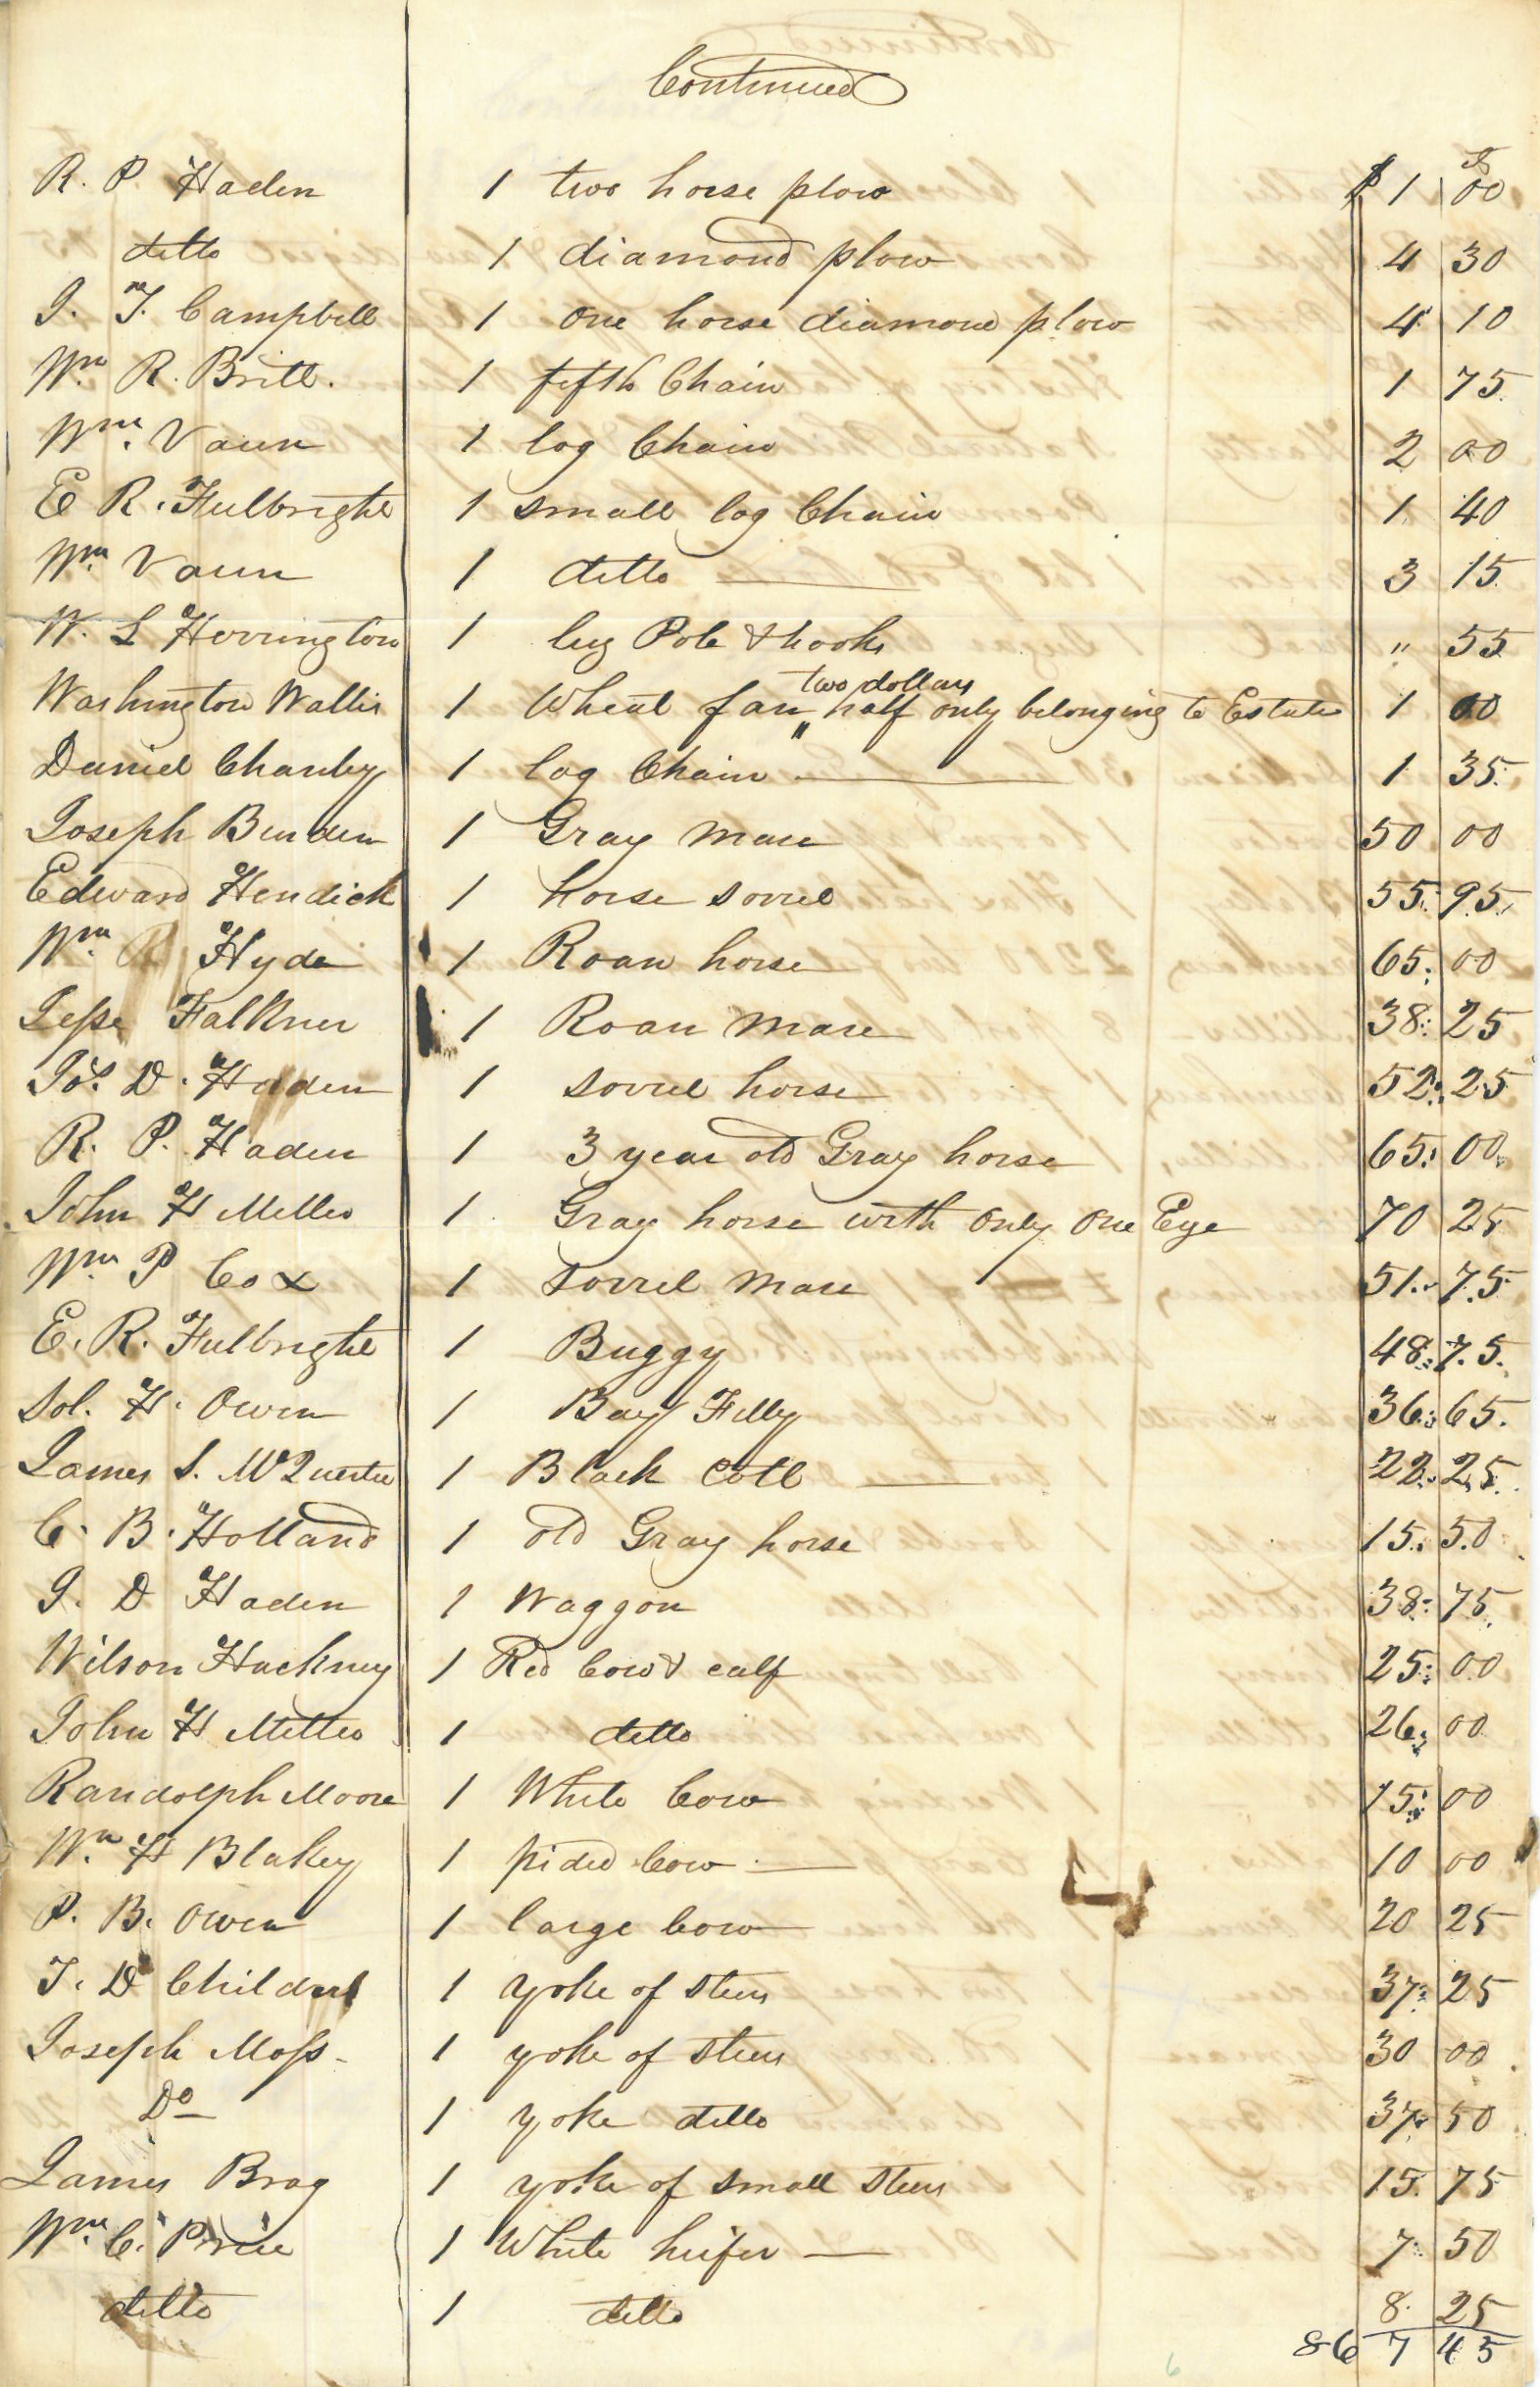 Continued
R. P. Haden 1 two horse plow $ 1 00
ditto 1 diamond plow 4 30
J. T. Campbell 1 one horse diamond plow 4 10
Wm R. Britt. 1 fifth Chain 1 75
Wm. Vaun 1 log Chain 2 00
E R. Fulbright 1 small log Chain 1 40
Wm. Vaun 1 ditto 3 15
W. L Herrington 1 lug Pole & hooks " 55
two dollars
Washington Wallis 1 Wheat fan " half only belonging to Estate 1 00
Daniel Chanley 1 log Chain 1 35
Joseph Burden 1 Gray Mare 50 00
Edward Hendick 1 horse sorrel 55 95
Wm. R Hyde 1 Roan horse 65 00
Jesse Falkner 1 Roan Mare 38 25
Jos. D. Haden 1 sorrel horse 52 25
R. P. Haden 1 3 year old Gray horse 65 00
John H Miller 1 Gray horse with only one Eye 70 25
Wm. P Cox 1 Sorrel Mare 51 75
E. R. Fulbright 1 Buggy 48 75
Sol. H. Owen 1 Bay Filly 36 65
James S. McQuerter 1 Black Colt 22 25
C. B. Holland 1 old Gray horse 15 50
J. D Haden 1 Waggon 38 75
Wilson Hackney 1 Red Cow & calf 25 00
John H Miller 1 ditto 26 00
Randolph Moore 1 White Cow 15 00
Wm. H Blakey 1 pided Cow 10 00
P. B. Owen 1 large Cow 20 25
T. D Childres 1 yoke of Steers 37 25
Joseph Moss 1 yoke of Steers 30 00
Do 1 yoke ditto 37 50
James Brag 1 yoke of small Steers 15 75
Wm. C. Price 1 White heifer 7 50
ditto 1 ditto 8 25
867 45